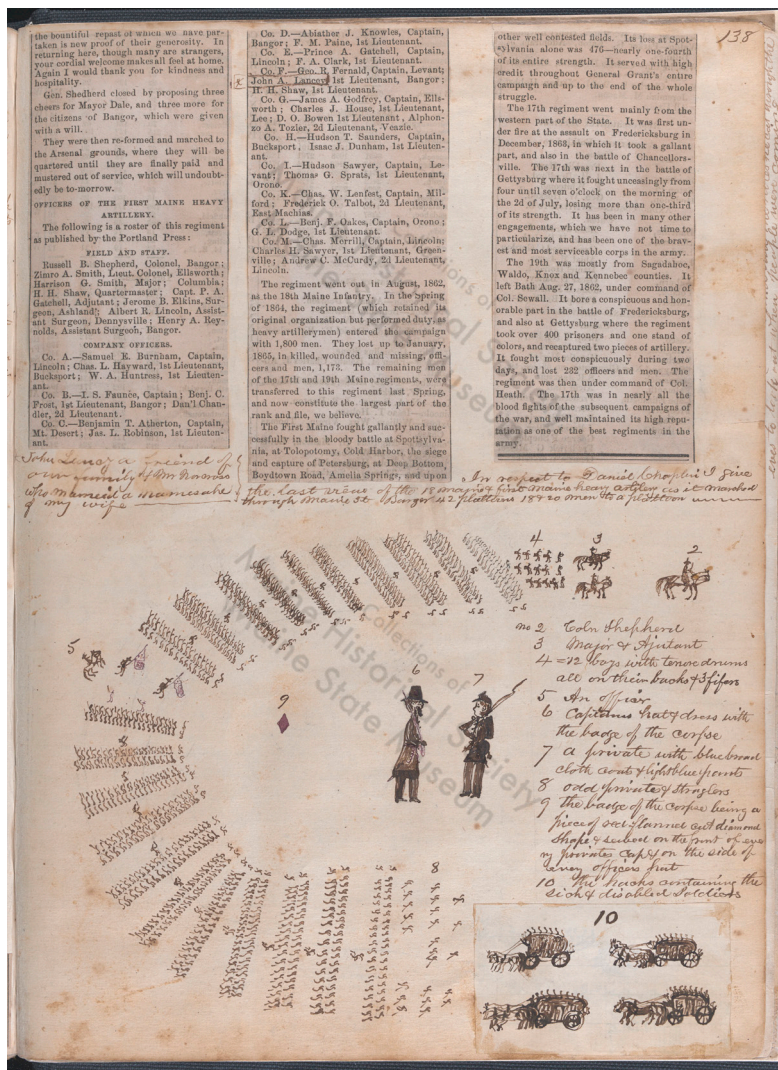 138
the bountiful repast of which we have par-
taken is new proof of their generosity. In
returning here, though many are strangers,
your cordial welcome makes all feel at home.
Again I would thank you for kindness and
hospitality.
Gen. Shedherd closed by proposing three
cheers for Mayor Dale, and three more for
the citizens of Bangor, which were given
with a will.
They were then re-formed and marched to
the Arsenal grounds, where they will be
quartered until they are finally paid and
mustered out of service, which will undoubt-
edly be to-morrow.
OFFICERS OF THE FIRST MAINE HEAVY
ARTILLERY.
The following is a roster of this regiment
as published by the Portland Press:
FIELD AND STAFF.
Russell B. Shepherd, Colonel, Bangor;
Zimro A. Smith, Lieut. Colonel, Ellsworth;
Harrison G. Smith, Major; Columbia;
H. H. Shaw, Quartermaster; Capt. P. A.
Gatchell, Adjutant; Jerome B. Elkins, Sur-
geon, Ashland; Albert R. Lincoln, Assist-
ant Surgeon, Dennysville; Henry A. Rey-
nolds, Assistant Surgeon, Bangor.
COMPANY OFFICERS.
Co. A.—Samuel E. Burnham, Captain,
Lincoln; Chas. L. Hayward, 1st Lieutenant,
Bucksport; W. A. Huntress, 1st Lieuten-
ant.
Co. B.—I. S. Faunce, Captain; Benj. C.
Frost, 1st Lieutenant, Bangor; Dan'l Chan-
dler, 2d Lieutenant.
Co. C.—Benjamin T. Atherton, Captain,
Mt. Desert; Jas. L. Robinson, 1st Lieuten-
ant.
Co. D.—Abiather J. Knowles, Captain,
Bangor; F. M. Paine, 1st Lieutenant.
Co. E.—Prince A. Gatchell, Captain,
Lincoln; F. A. Clark, 1st Lieutenant.
Co. F.—Geo. R. Fernald, Captain, Levant;
John A. Lancey, 1st Lieutenant, Bangor;
H. H. Shaw, 1st Lieutenant.
Co. G.—James A. Godfrey, Captain, Ells-
worth; Charles J. House, 1st Lieutenant,
Lee; D. O. Bowen 1st Lieutenant, Alphon-
zo A. Tozier, 2d Lieutenant, Veazie.
Co. H.—Hudson T. Saunders, Captain,
Bucksport, Isaac J. Dunham, 1st Lieuten-
ant.
Co. I.—Hudson Sawyer, Captain, Le-
vant; Thomas G. Sprats, 1st Lieutenant,
Orono.
Co. K.—Chas. W. Lenfest, Captain, Mil-
ford; Frederick O. Talbot, 2d Lieutenant,
East Machias.
Co. L.—Benj. F. Oakes, Captain, Orono;
G. L. Dodge, 1st Lieutenant.
Co. M.—Chas. Merrill, Captain, Lincoln;
Charles H. Sawyer, 1st Lieutenant, Green-
ville; Andrew C. McCurdy, 2d Lieutenant,
Lincoln.
The regiment went out in August, 1862,
as the 18th Maine Infantry. In the Spring
of 1864, the regiment (which retained its
original organization but performed duty, as
heavy artillerymen) entered the campaign
with 1,800 men. They lost up to January,
1865, in killed, wounded and missing, offi-
cers and men, 1,173. The remaining men
of the 17th and 19th Maine regiments, were
transferred to this regiment last Spring,
and now constitute the largest part of the
rank and file, we believe.
The First Maine fought gallantly and suc-
cessfully in the bloody battle at Spottsylva-
nia, at Tolopotomy, Cold Harbor, the siege
and capture of Petersburg, at Deep Bottom,
Boydtown Road, Amelia Springs, and upon
other well contested fields. Its loss at Spot-
sylvania alone was 476—nearly one-fourth
of its entire strength. It served with high
credit throughout General Grant's entire
campaign and up to the end of the whole
struggle.
The 17th regiment went mainly from the
western part of the State. It was first un-
der fire at the assault on Fredericksburg in
December, 1863, in which it took a gallant
part, and also in the battle of Chancellors-
ville. The 17th was next in the battle of
Gettysburg where it fought unceasingly from
four until seven o'clock on the morning of
the 2d of July, losing more than one-third
of its strength. It has been in many other
engagements, which we have not time to
particularize, and has been one of the brav-
est and most serviceable corps in the army.
The 19th was mostly from Sagadahoc,
Waldo, Knox and Kennebec counties. It
left Bath Aug. 27, 1862, under command of
Col. Sewall. It bore a conspicuous and hon-
orable part in the battle of Fredericksburg,
and also at Gettysburg where the regiment
took over 400 prisoners and one stand of
colors, and recaptured two pieces of artillery.
It fought most conspicuously during two
days, and lost 232 officers and men. The
regiment was then under command of Col.
Heath. The 17th was in nearly all the
blood fights of the subsequent campaigns of
the war, and well maintained its high repu-
tation as one of the best regiments in the
army.
John Lancey a friend of
our family & Mr
who married a namesake
of my wife
In respect to Daniel Chaplin I give
the last view of the 18 maine & first maine heavy artillery as it marched
through Maine St. Bangor 42 plattons 18 & 20 men to a platton
4 3 2
5 6 7
9
8
no 2 Coln Shepherd
3 Major & Ajutant
4 = 12 boys with tenor drums
all on their backs & 3 fifers
5 An officer
6 Captains hat & dress with
the badge of the corpse
7 a private with blue broad
cloth coat & light blue pants
8 odd privates & straglers
9 the badge of the corpse being a
piece of red flannel cut diamond
shape & sewed on the front of eve
ry privates cap & on the side of
every officers hat
10 the hacks containing the
sick & disabled soldiers
10
Collections of
Maine Historical Society
Maine State Museum